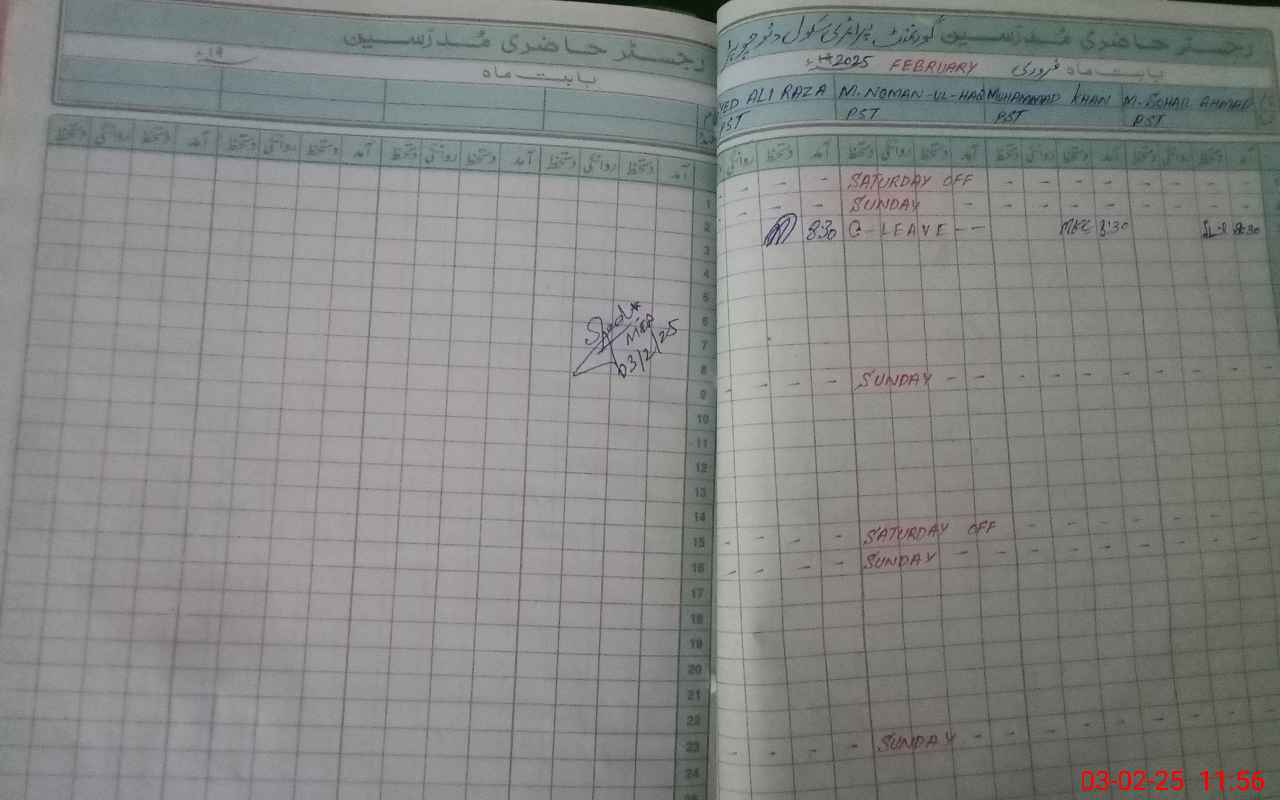 رجسٹر حاضری مُدرّسین گورنمنٹ پرائمری سکول
بابت ماہ فروری FEBRUARY 2025
ALI RAZA M. NOMAN-UL-HAQ MUHAMMAD KHAN M. SOHAIL AHMAD
PST PST PST PST
آمد دستخط روانگی دستخط آمد دستخط روانگی دستخط آمد دستخط روانگی دستخط آمد دستخط روانگی
- - - SATURDAY OFF - - - - - - - -
- - - - SUNDAY - - - - - - - - -
8:30 C-LEAVE - - 8:30 8:30
- - - - SUNDAY - - - - - - - - -
- - - - SATURDAY OFF - - - - - - -
- - - - SUNDAY - - - - - - - - -
- - - - SUNDAY - - - - - - - - -
رجسٹر حاضری مُدرّسین
بابت ماہ ۱۹ء
آمد دستخط روانگی دستخط آمد دستخط روانگی دستخط آمد دستخط روانگی دستخط آمد دستخط روانگی دستخط
1
2
3
4
5
6
7
8
9
10
11
12
13
14
15
16
17
18
19
20
21
22
23
24
03/2/25
03-02-25 11:56